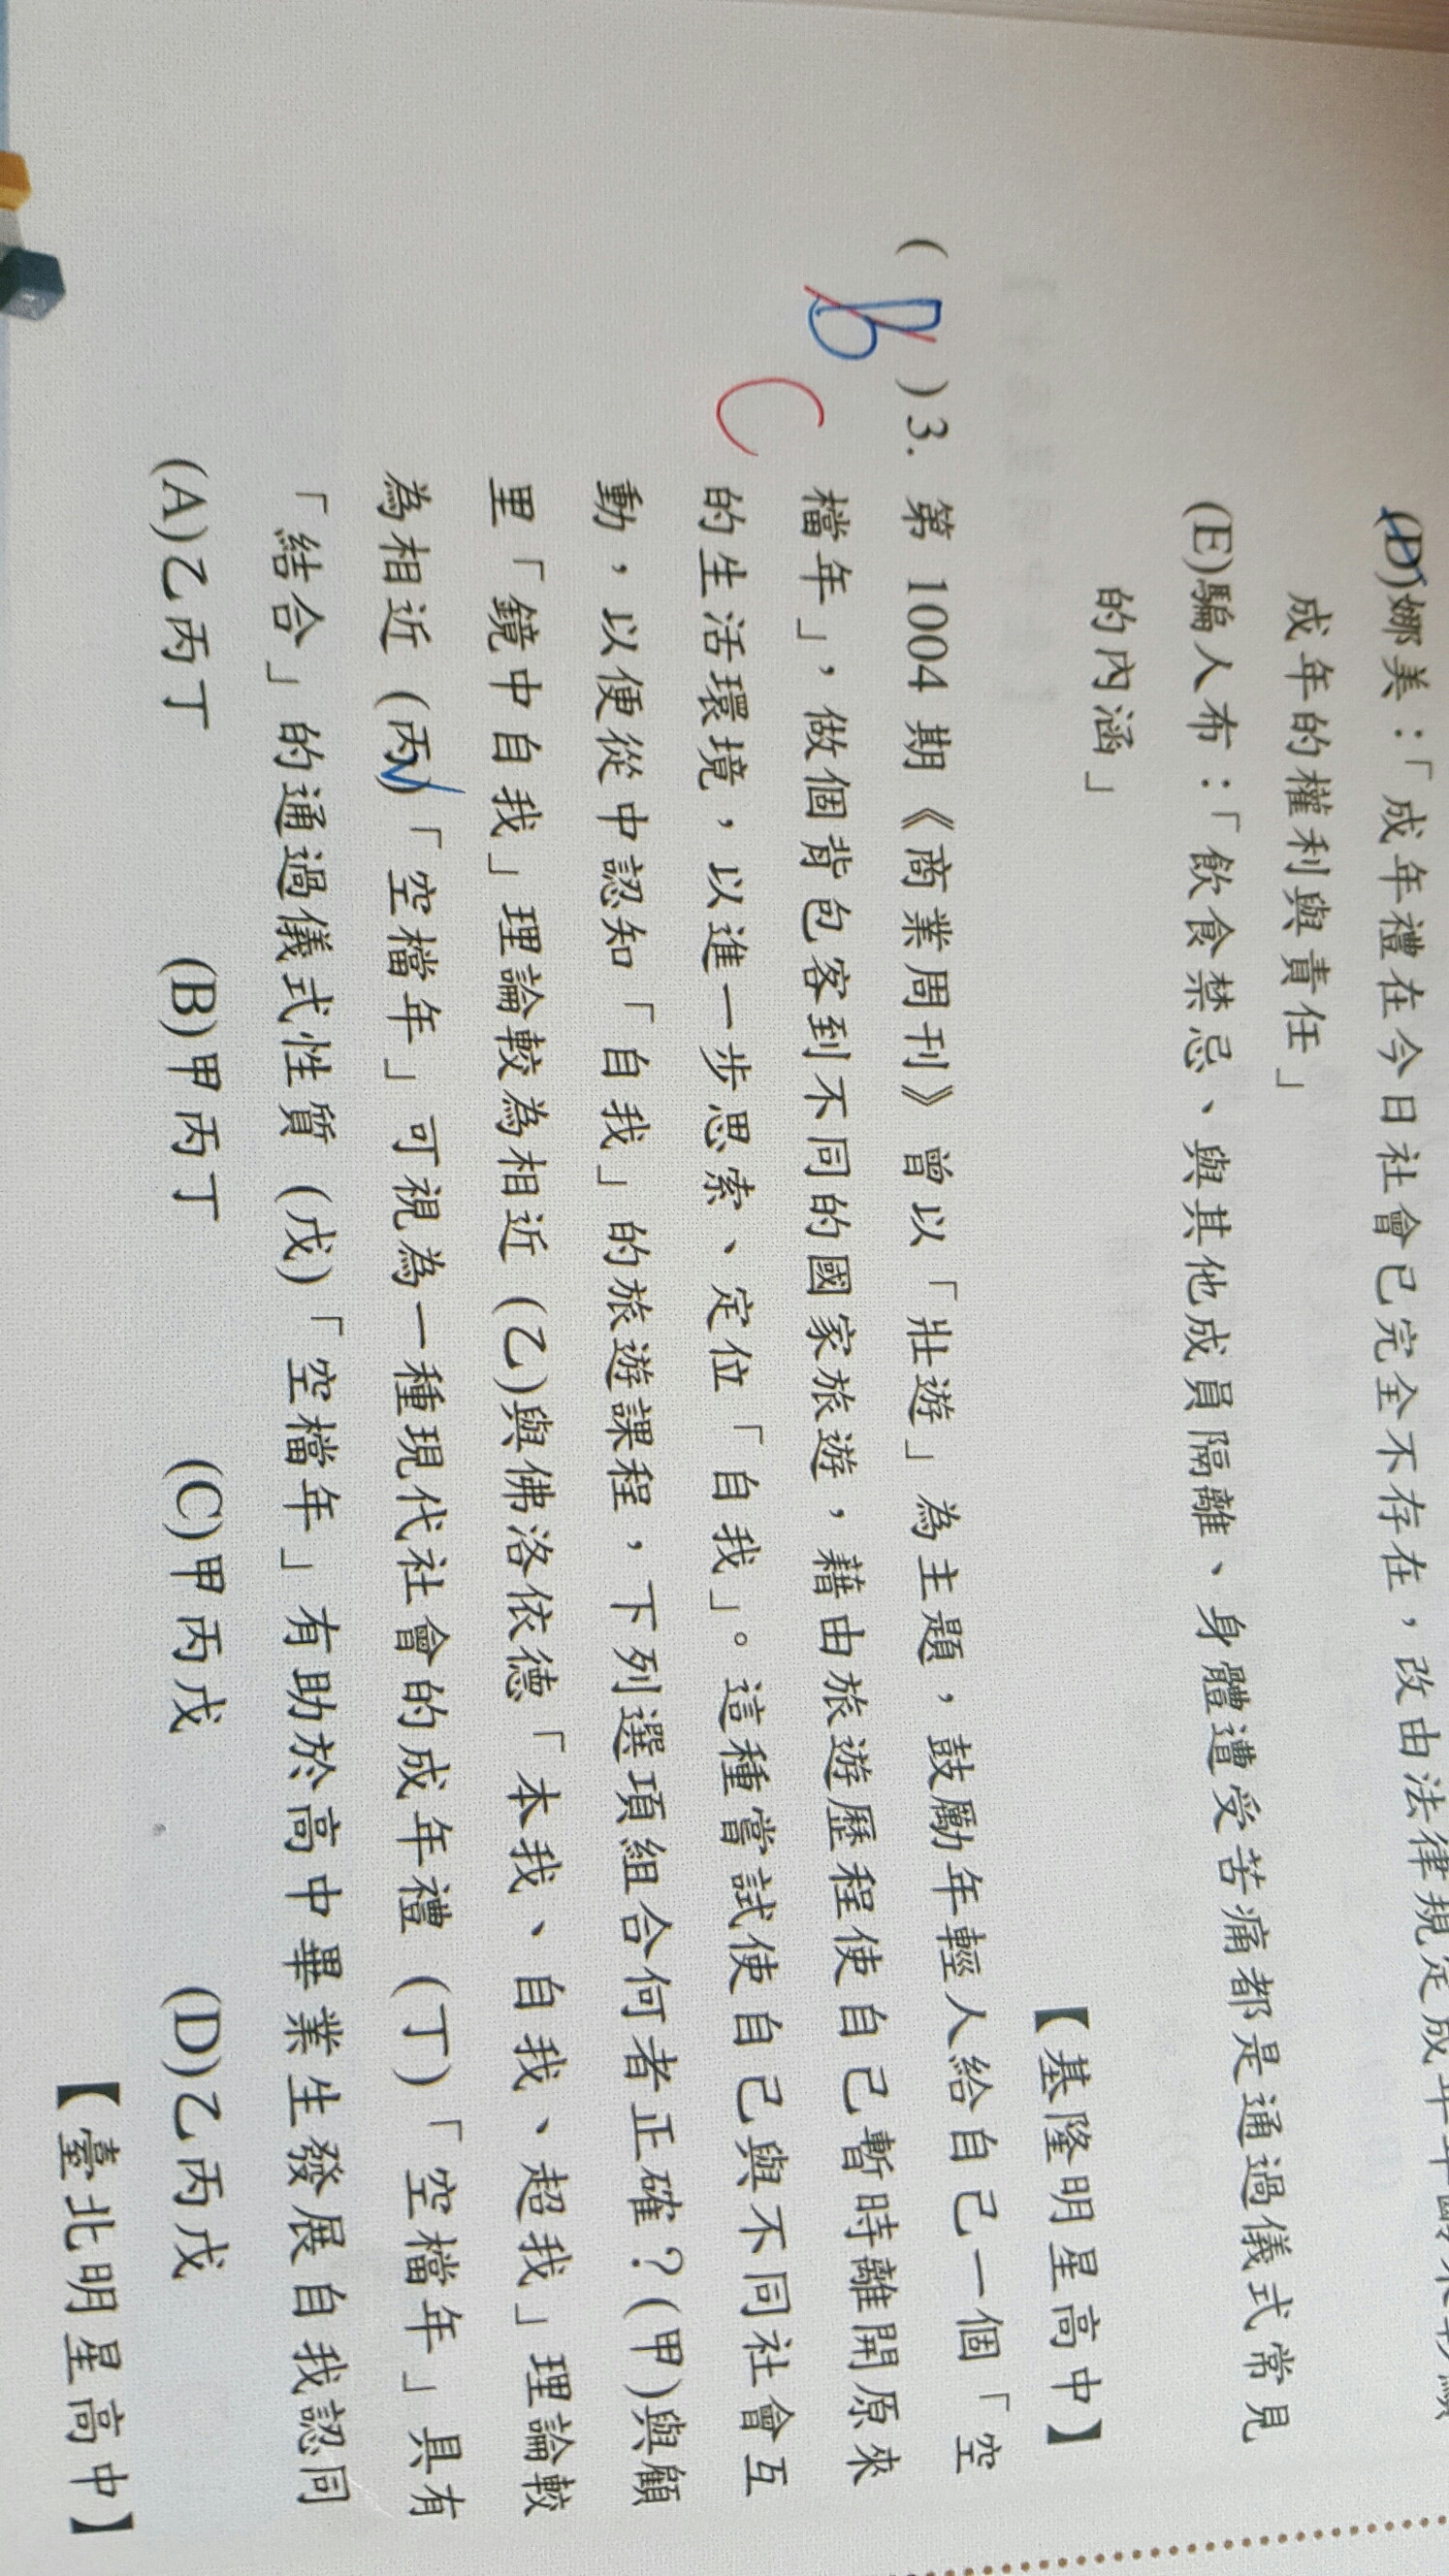 (D)娜美：「成年禮在今日社會已完全不存在，改由法律規定成年年齡來
成年的權利與責任」
(E)騙人布：「飲食禁忌、與其他成員隔離、身體遭受苦痛都是通過儀式常見
的內涵」
【基隆明星高中】
( B )3. 第 1004 期《商業周刊》曾以「壯遊」為主題，鼓勵年輕人給自己一個「空
檔年」，做個背包客到不同的國家旅遊，藉由旅遊歷程使自己暫時離開原來
C
的生活環境，以進一步思索、定位「自我」。這種嘗試使自己與不同社會互
動，以便從中認知「自我」的旅遊課程，下列選項組合何者正確？(甲)與顧
里「鏡中自我」理論較為相近 (乙)與佛洛依德「本我、自我、超我」理論較
為相近 (丙)「空檔年」可視為一種現代社會的成年禮 (丁)「空檔年」具有
「結合」的通過儀式性質 (戊)「空檔年」有助於高中畢業生發展自我認同
(A)乙丙丁 (B)甲丙丁 (C)甲丙戊 (D)乙丙戊
【臺北明星高中】